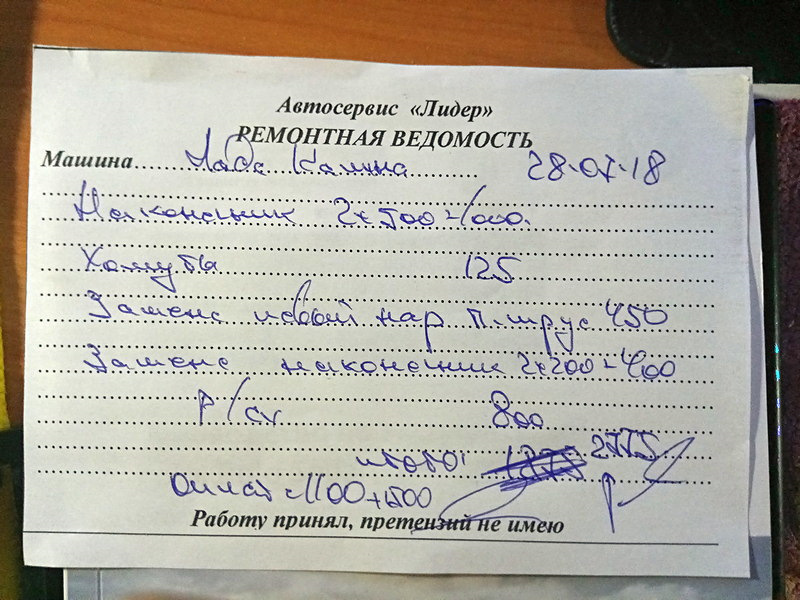 Автосервис «Лидер»
РЕМОНТНАЯ ВЕДОМОСТЬ
Машина Лада Калина 28.07.18
Наконечник 2х500=1000
Хомуты 125
Замена левый нар шрус 450
Замена наконечник 2х200=400
р/сх 800
итого: 2775
Оплат 1100+1500
Работу принял, претензий не имею